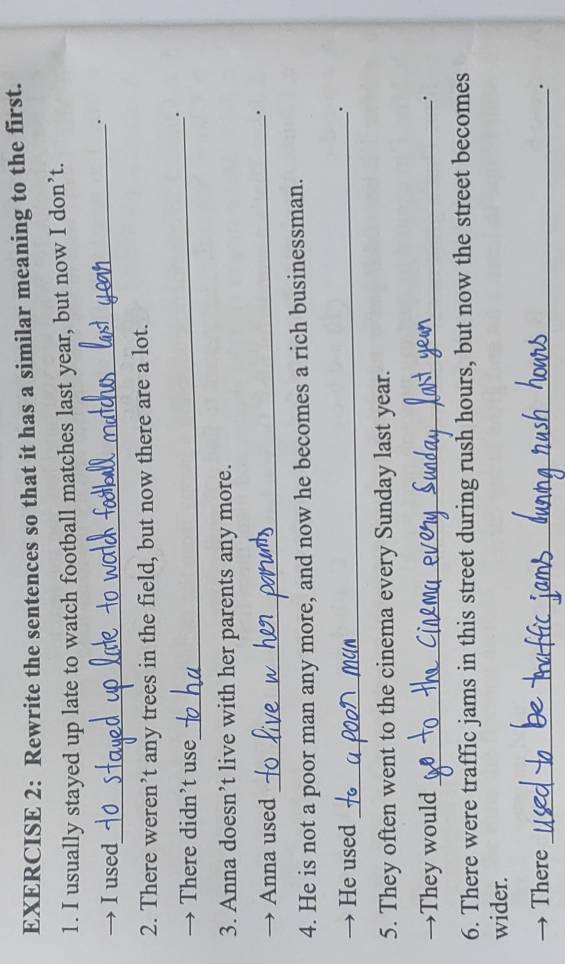 EXERCISE 2: Rewrite the sentences so that it has a similar meaning to the first.
1. I usually stayed up late to watch football matches last year, but now I don't.
→ I used to stayed up late to watch football matches last year.
2. There weren't any trees in the field, but now there are a lot.
→ There didn't use to ha.
3. Anna doesn't live with her parents any more.
→ Anna used to live w her parents.
4. He is not a poor man any more, and now he becomes a rich businessman.
→ He used to a poor man.
5. They often went to the cinema every Sunday last year.
→They would go to the cinema every Sunday last year.
6. There were traffic jams in this street during rush hours, but now the street becomes
wider.
→ There used to be traffic jams during rush hours.